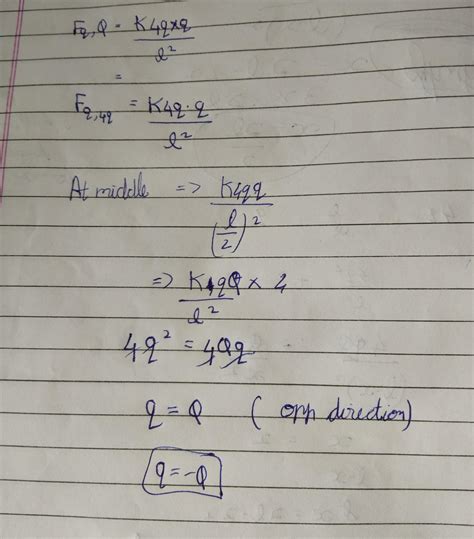 F_{q,Q} = \frac{K4q×q}{l^2}
=
F_{q,4q} = \frac{K4q·q}{l^2}
At middle => \frac{K4qq}{(\frac{l}{2})^2}
=> \frac{K qQ × 4}{l^2}
4q^2 = 4Qq
q = Q ( opp direction)
q = -Q